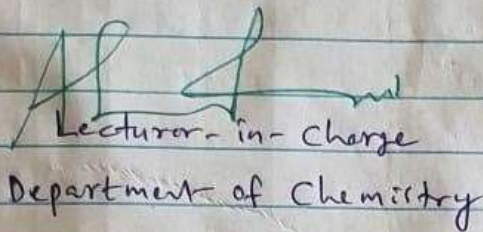 Lecturer-in-Charge
Department of Chemistry